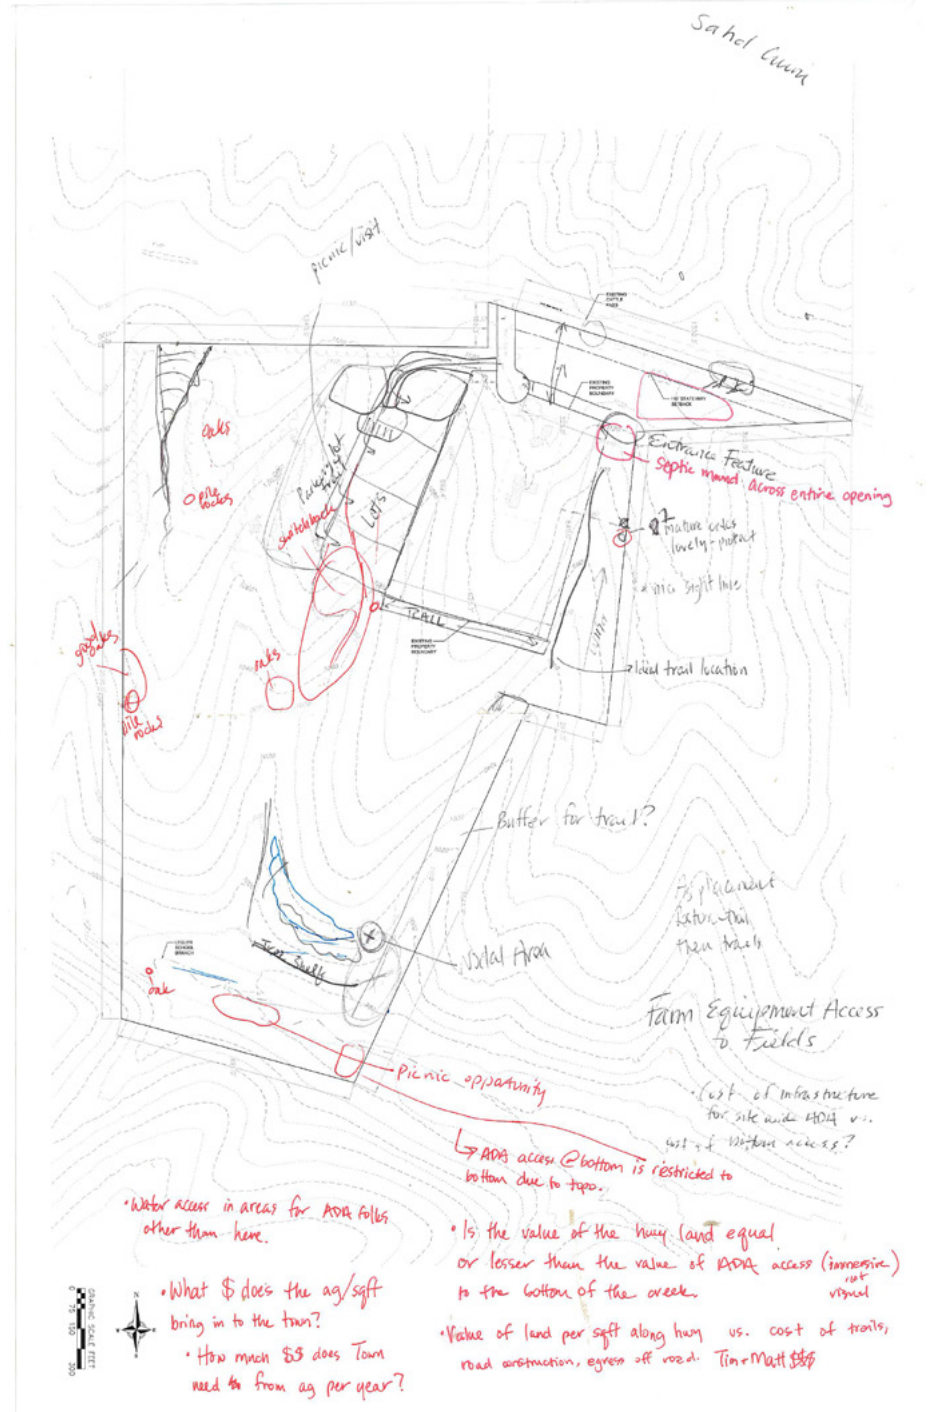 Sahd
picnic/visit
EXISTING
CATTLE
PASS
EXISTING
PROPERTY
BOUNDARY
SETBACK
oaks
pile
rocks
Parking lot
switchback
LOTS
Entrance Feature
Septic mound across entire opening
mature oaks
lovely - protect
sight line
TRAIL
EXISTING
PROPERTY
BOUNDARY
Ideal trail location
good
oaks
pile
rocks
oaks
Buffer for trail?
then trails
Tree Shelf
Area
SCHOOL
BRANCH
oak
Farm Equipment Access
to Fields
picnic opportunity
• Cost of infrastructure
for site wide ADA vs.
cost of bottom access?
ADA access @ bottom is restricted to
bottom due to topo.
• Water access in areas for ADA folks
other than here.
• Is the value of the hwy land equal
or lesser than the value of ADA access (immersive)
not
visual
to the bottom of the creek.
• What $ does the ag/sqft
bring in to the town?
• How much $$ does Town
need from ag per year?
• Value of land per sqft along hwy vs. cost of trails,
road construction, egress off road. Tim + Matt $$$
GRAPHIC SCALE FEET
0 75 150 300
N